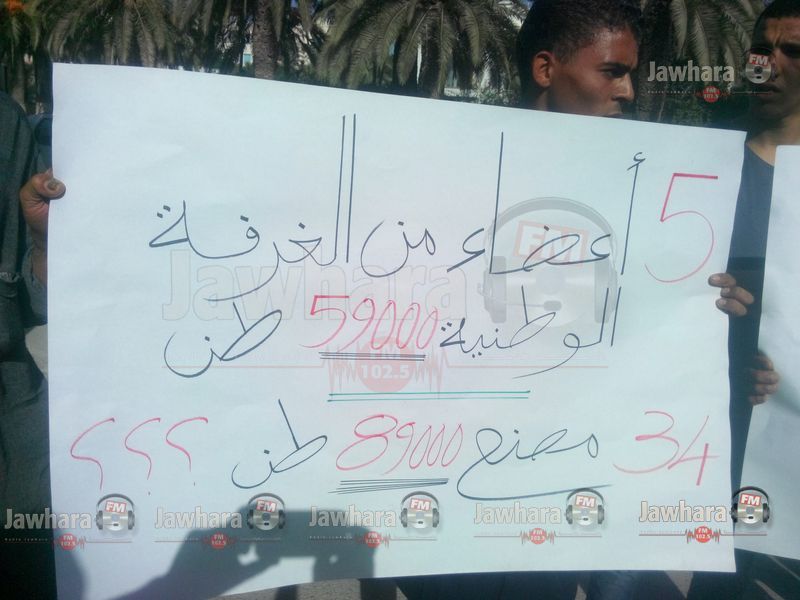 5 أعضاء من الغرفة
الوطنية 59000 طن
34 مصنع 89000 طن ؟؟؟
Jawhara FM
Jawhara FM
102.5
Jawhara FM
102.5
Jawhara FM
102.5
Jawhara FM
102.5
Jawhara FM
102.5
Jawhara FM
102.5